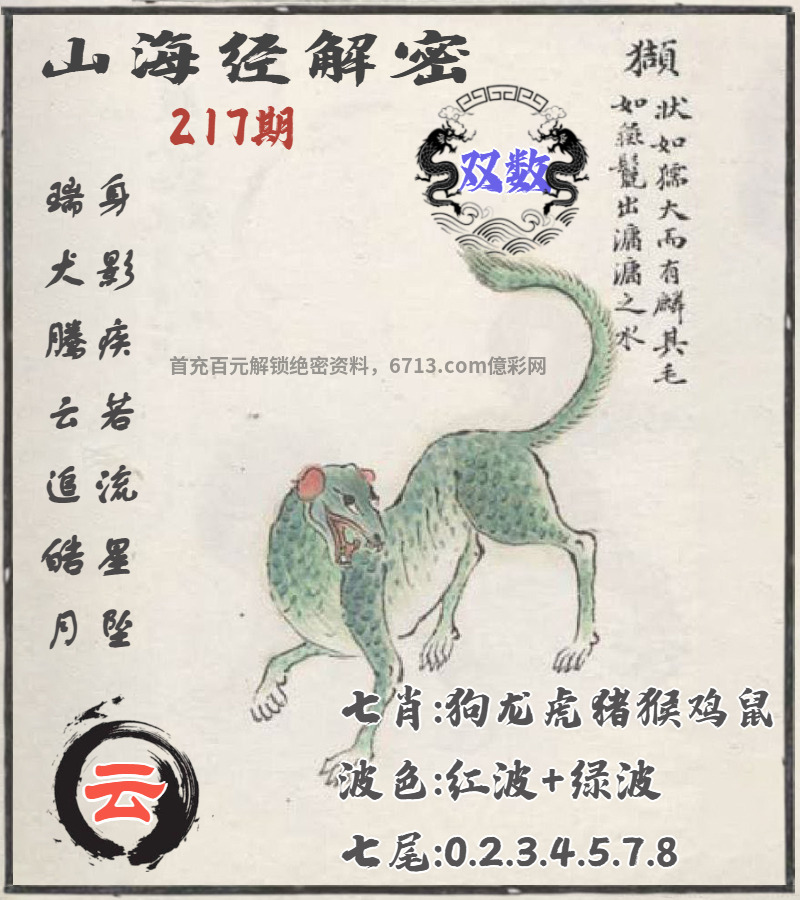 山海经解密
217期
双数
獺
狀如獳犬而有鱗其毛
如彘鬣出滽滽之水
身影疾若流星坠
瑞犬腾云追皓月
首充百元解锁绝密资料，6713.com億彩网
七肖:狗龙虎猪猴鸡鼠
波色:红波+绿波
七尾:0.2.3.4.5.7.8
云